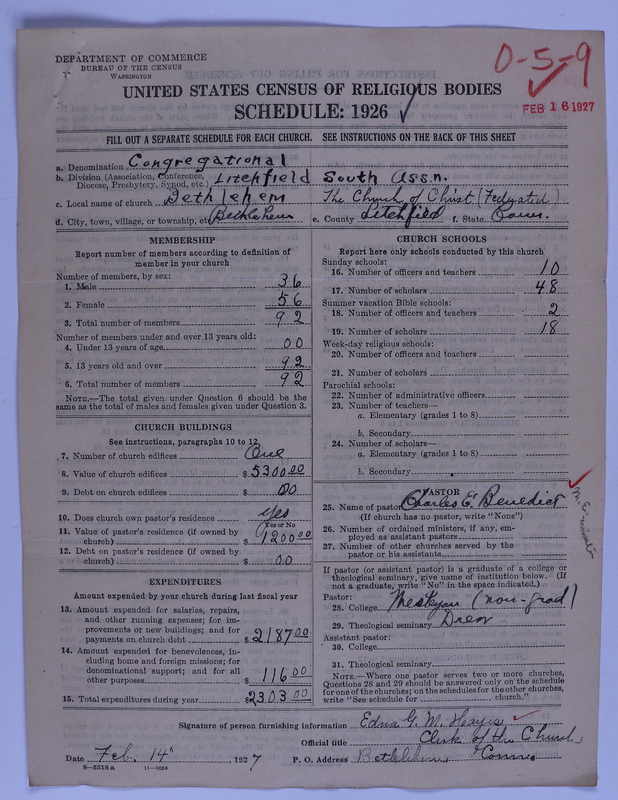 DEPARTMENT OF COMMERCE
BUREAU OF THE CENSUS
WASHINGTON
0-5-9
FEB 16 1927
UNITED STATES CENSUS OF RELIGIOUS BODIES
SCHEDULE: 1926
FILL OUT A SEPARATE SCHEDULE FOR EACH CHURCH. SEE INSTRUCTIONS ON THE BACK OF THIS SHEET
a. Denomination Congregational
b. Division (Association, Conference, Diocese, Presbytery, Synod, etc.) Litchfield South Assn.
c. Local name of church Bethlehem The Church of Christ (Federated)
d. City, town, village, or township, etc. Bethlehem e. County Litchfield f. State Conn.
MEMBERSHIP
Report number of members according to definition of
member in your church
Number of members, by sex:
1. Male 36
2. Female 56
3. Total number of members 92
Number of members under and over 13 years old:
4. Under 13 years of age 00
5. 13 years old and over 92
6. Total number of members 92
NOTE.—The total given under Question 6 should be the
same as the total of males and females given under Question 3.
CHURCH BUILDINGS
See instructions, paragraphs 10 to 12
7. Number of church edifices One
8. Value of church edifices $5300.00
9. Debt on church edifices $ 00
10. Does church own pastor's residence yes
Yes or No
11. Value of pastor's residence (if owned by
church) $1200.00
12. Debt on pastor's residence (if owned by
church) $ 00
EXPENDITURES
Amount expended by your church during last fiscal year
13. Amount expended for salaries, repairs,
and other running expenses; for im-
provements or new buildings; and for
payments on church debt $2187.00
14. Amount expended for benevolences, in-
cluding home and foreign missions; for
denominational support; and for all
other purposes $ 116.00
15. Total expenditures during year $2303.00
CHURCH SCHOOLS
Report here only schools conducted by this church
Sunday schools:
16. Number of officers and teachers 10
17. Number of scholars 48
Summer vacation Bible schools:
18. Number of officers and teachers 2
19. Number of scholars 18
Week-day religious schools:
20. Number of officers and teachers
21. Number of scholars
Parochial schools:
22. Number of administrative officers
23. Number of teachers—
a. Elementary (grades 1 to 8)
b. Secondary
24. Number of scholars—
a. Elementary (grades 1 to 8)
b. Secondary
PASTOR
25. Name of pastor Charles E. Benedict
(If church has no pastor, write "None")
26. Number of ordained ministers, if any, em-
ployed as assistant pastors
27. Number of other churches served by the
pastor or his assistants
If pastor (or assistant pastor) is a graduate of a college or
theological seminary, give name of institution below. (If
not a graduate, write "No" in the space indicated.)
Pastor:
28. College Wesleyan (non-grad)
29. Theological seminary Drew
Assistant pastor:
30. College
31. Theological seminary
NOTE.—Where one pastor serves two or more churches,
Questions 28 and 29 should be answered only on the schedule
for one of the churches; on the schedules for the other churches,
write "See schedule for church."
Signature of person furnishing information Edna G. M. Hayes
Official title Clerk of the Church
Date Feb. 14" 1927 P. O. Address Bethlehem Conn.
8-5518a 11-9684